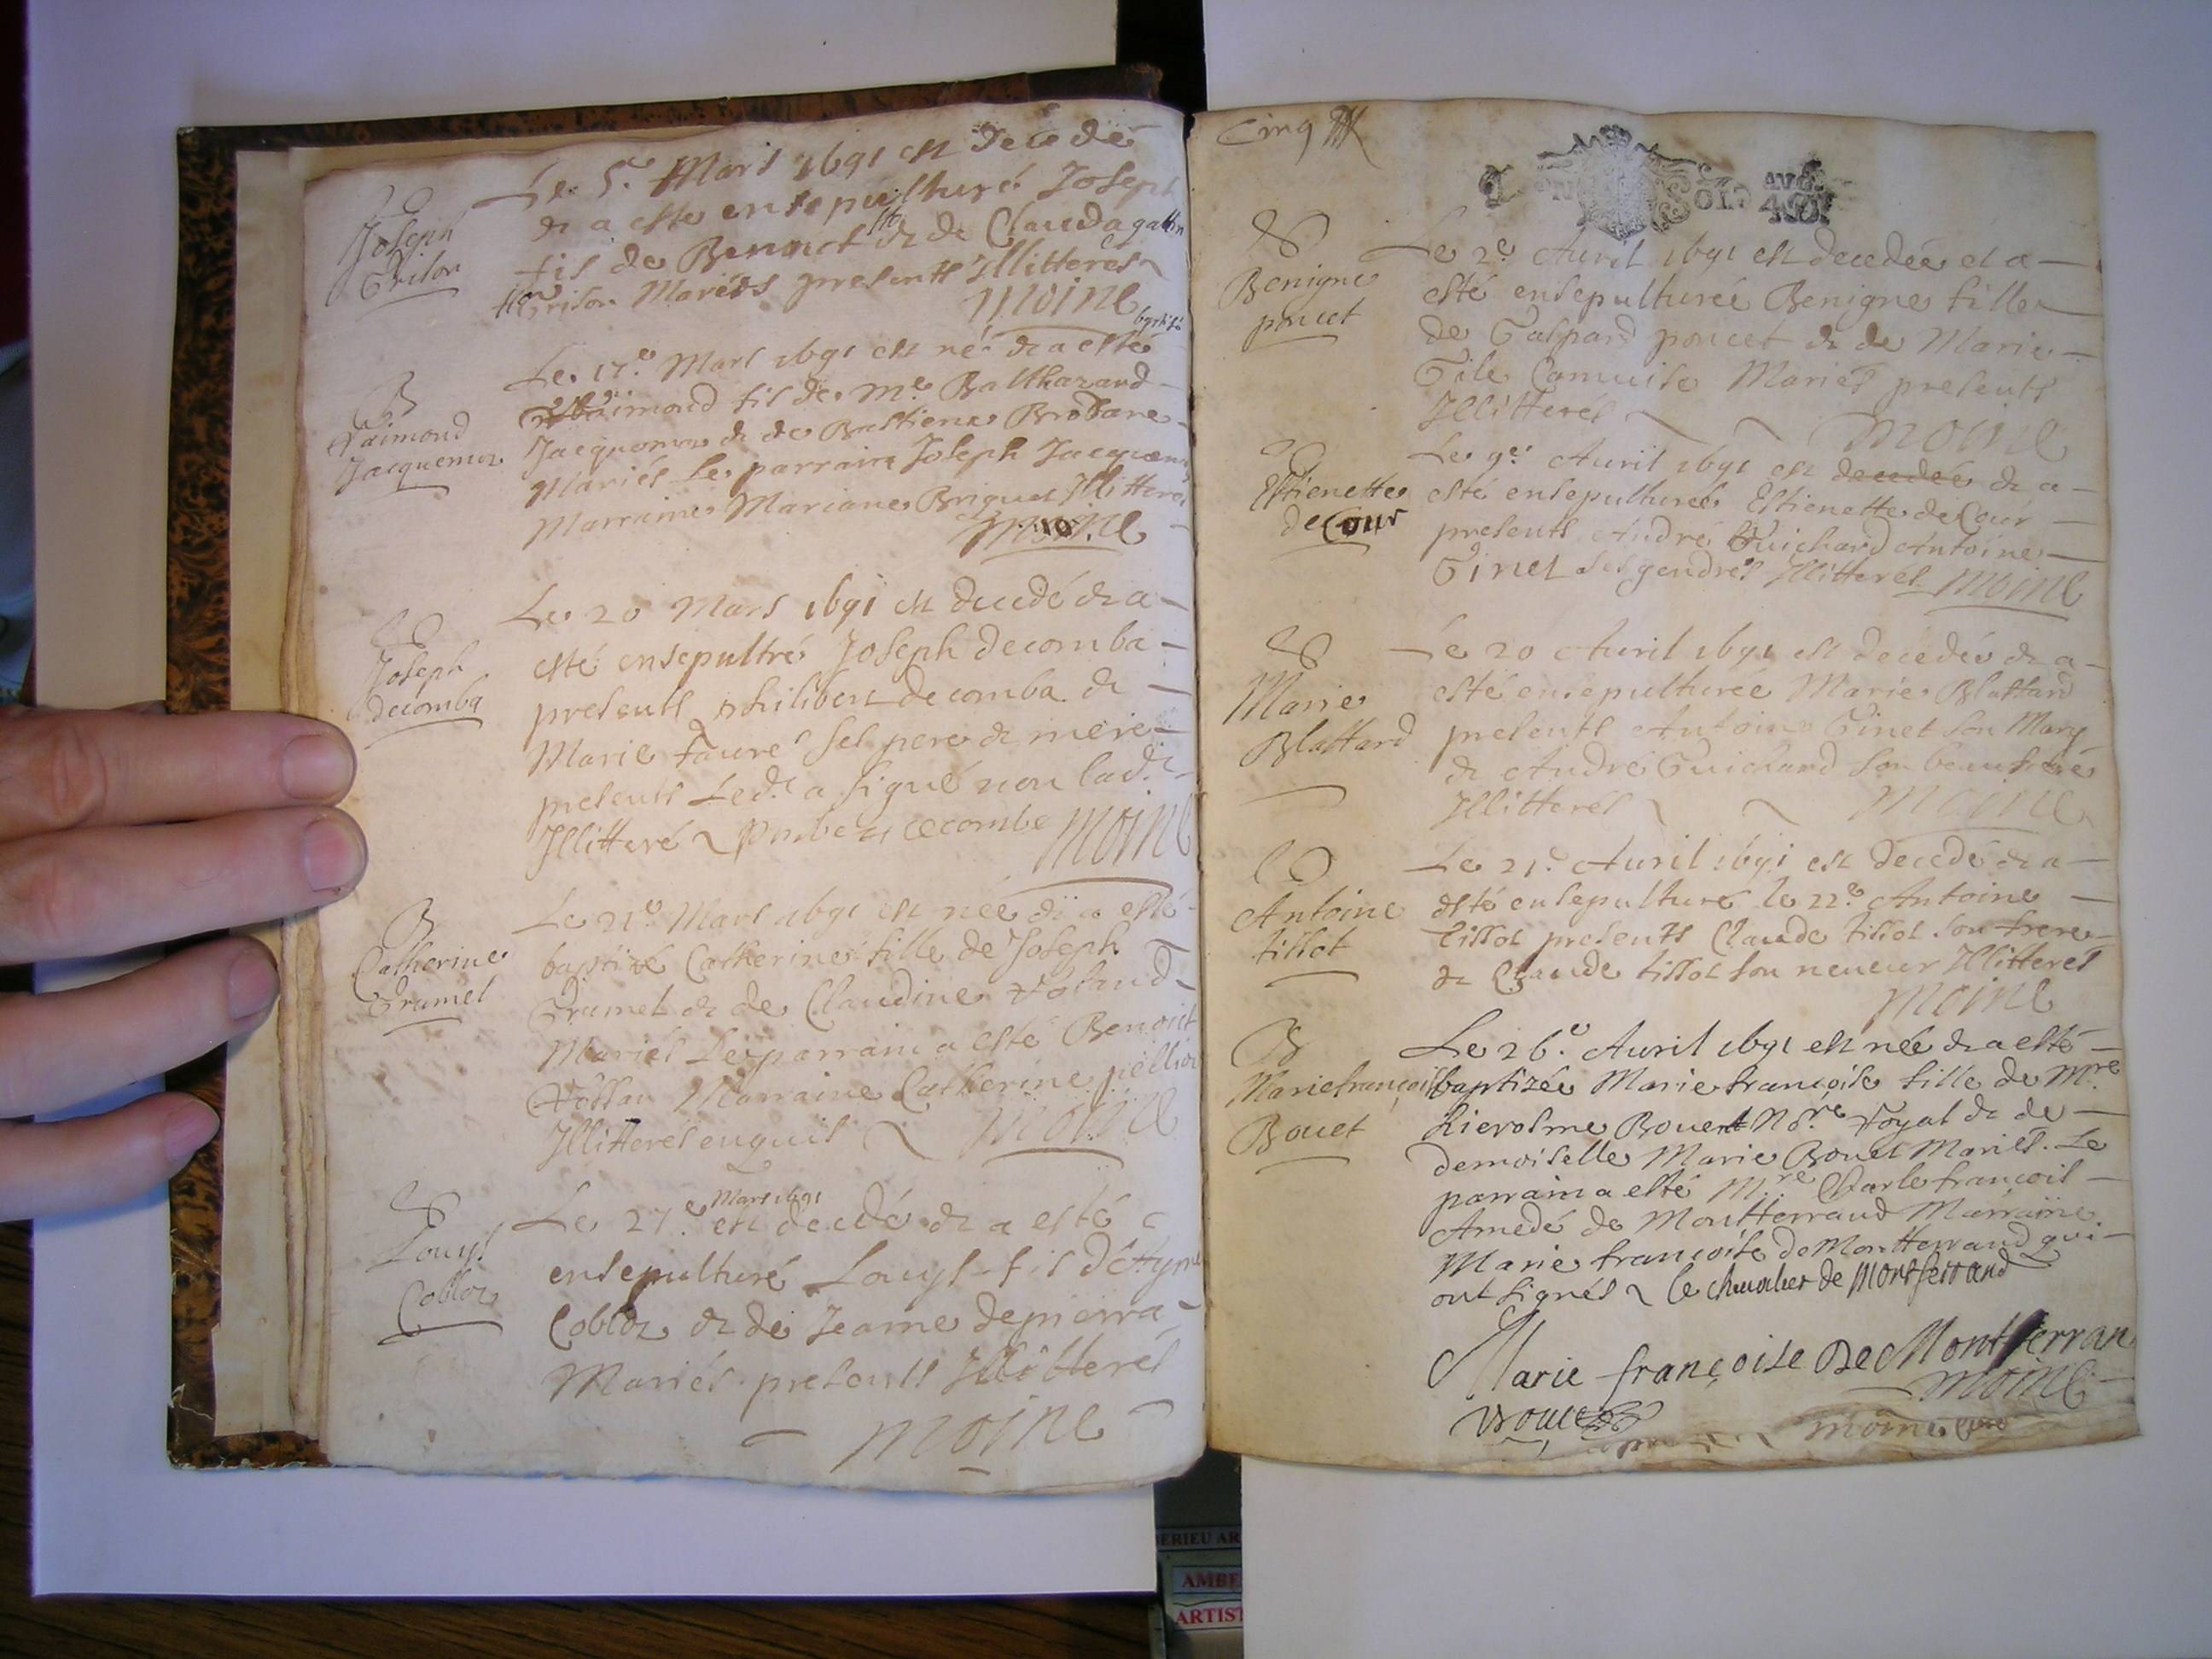 Joseph
Grison
Le 5.e Mars 1691 est decedé
& a esté ensepulturé Joseph
fis de Benoict & de Clauda
Grison Mariés presents Illitterés
Moine
B
Raimond
Jacquemoz
Le 17.e Mars 1691 est né & a esté
baptisé
Raimond fis de M.e Balthazard
Jacquemoz & de Bastienne
Mariés Le parrain Joseph
Marraine Mariane Briguet Illitterés
Moine
Joseph
decomba
Le 20 Mars 1691 est decedé & a
esté ensepultré Joseph decomba
presents philibert decomba &
Marie faure ses pere & mere
presents Led.t a signé non lad.te
Illitteré decombe Moine
B
Catherine
Gramel
Le 21.e Mars 1691 est née & a esté
baptizé Catherine fille de Joseph
Gramel & de Claudine
Mariés Le parrain a esté Benoict
Marraine Catherine
Illitterés enquis Moine
Louys
Cobloz
Le 27.e Mars 1691
est decedé & a esté
ensepulturé Louys fis d'Ayme
Cobloz & de Jeanne depierra
Mariés presents Illitterés
Moine
Cinq
Benigne
poncet
Le 2.e Avril 1691 est decedée et a
esté ensepulturée Benigne fille
de Gaspard poncet & de Marie
Mariés presents
Illitterés Moine
Estienette
de Cour
Le 9.e Avril 1691 est decedée & a
esté ensepulturée Estienette de Cour
presents André Guichard Antoine
Ginet ses gendres Illitterés Moine
Marie
Blattard
Le 20 Avril 1691 est decedée & a
esté ensepulturee Marie Blattard
presents Antoine Ginet son Mary
& André Guichard son beaufrere
Illitterés Moine
Antoine
tissot
Le 21.e Avril 1691 est decedé & a
esté ensepulturé le 22.e Antoine
tissot presents Claude tissot son frere
& Claude tissot son neveur Illitterés
Moine
B
Mariefrançoise
Bouet
Le 26.e Avril 1691 est née & a esté
baptizée Mariefrançoise fille de M.re
hierosme Bouet No.re Royal & de
demoiselle Marie Bouet Mariés. Le
parrain a esté M.re Charlefrançois
Amedé de Montferrand Marraine
Marie françoise de Montferrand qui
ont signés le chevalier de Montferrand
Marie françoise De Montferran
Moine
Bouet
moine curé
AMBE
ARTIST